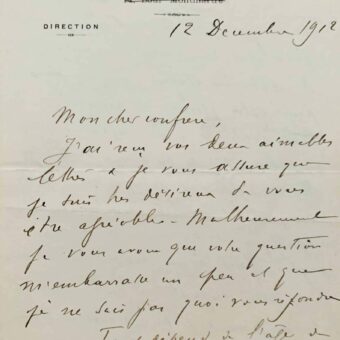 DIRECTION
12 Decembre 1912
Mon cher confrere,
J'ai reçu vos deux aimables
lettres & je vous assure que
je suis très désireux de vous
être agréable - Malheureusement
je vous avoue que votre question
m'embarrasse un peu et que
je ne sais pas quoi vous répondre
Tout dépend de l'âge de